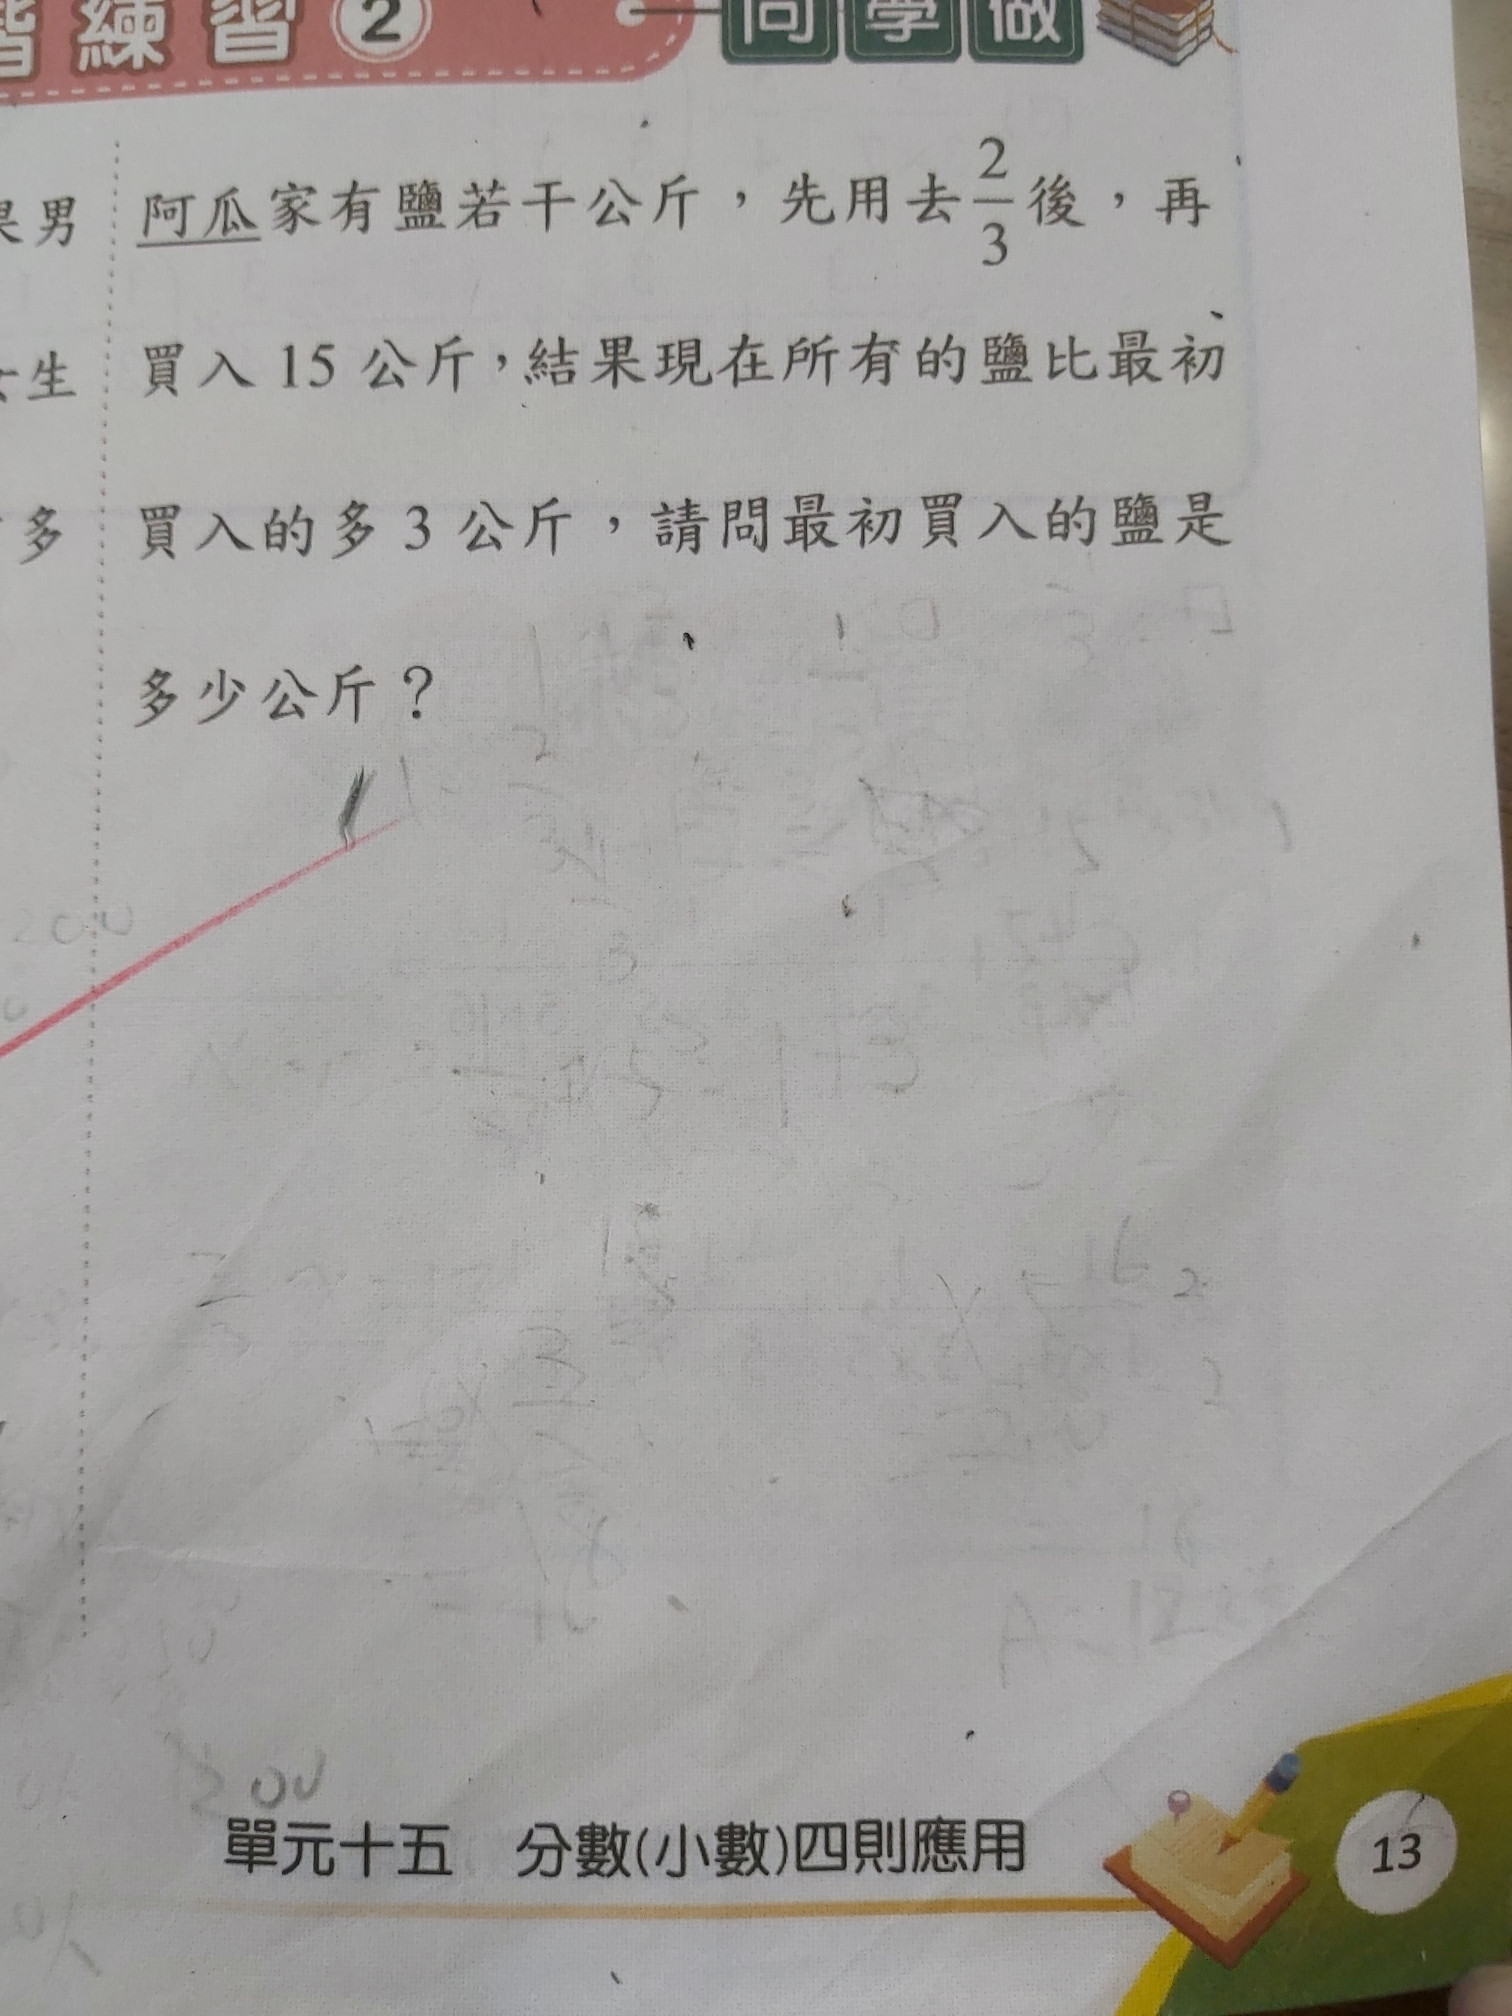 練習 2 同學做
果男
阿瓜家有鹽若干公斤，先用去2/3後，再
生
買入15公斤，結果現在所有的鹽比最初
多
買入的多3公斤，請問最初買入的鹽是
多少公斤？
200
1200
單元十五 分數(小數)四則應用
13